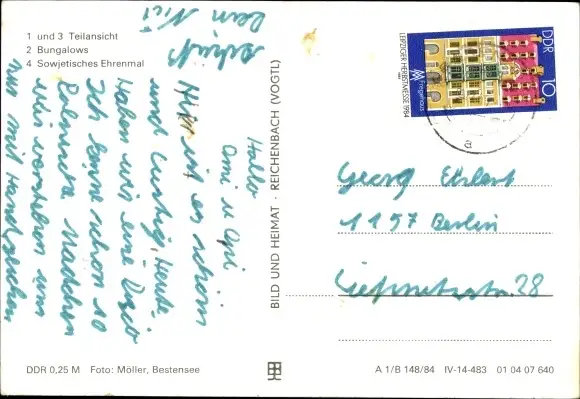 1 und 3 Teilansicht
2 Bungalows
4 Sowjetisches Ehrenmal
Hallo
Omi u Opi
Hier ist es schön
und lustig. Heute
Haben wir eine Disco
Ich kenne schon 10
Polnische Mädchen
Wir verstehen uns
nur mit Handzeichen
schuß
Dein
BILD UND HEIMAT · REICHENBACH (VOGTL)
DDR
10
LEIPZIGER HERBSTMESSE 1984
Fregehaus
a
Georg
1157 Berlin
28
DDR 0,25 M Foto: Möller, Bestensee
A 1/B 148/84 IV-14-483 01 04 07 640